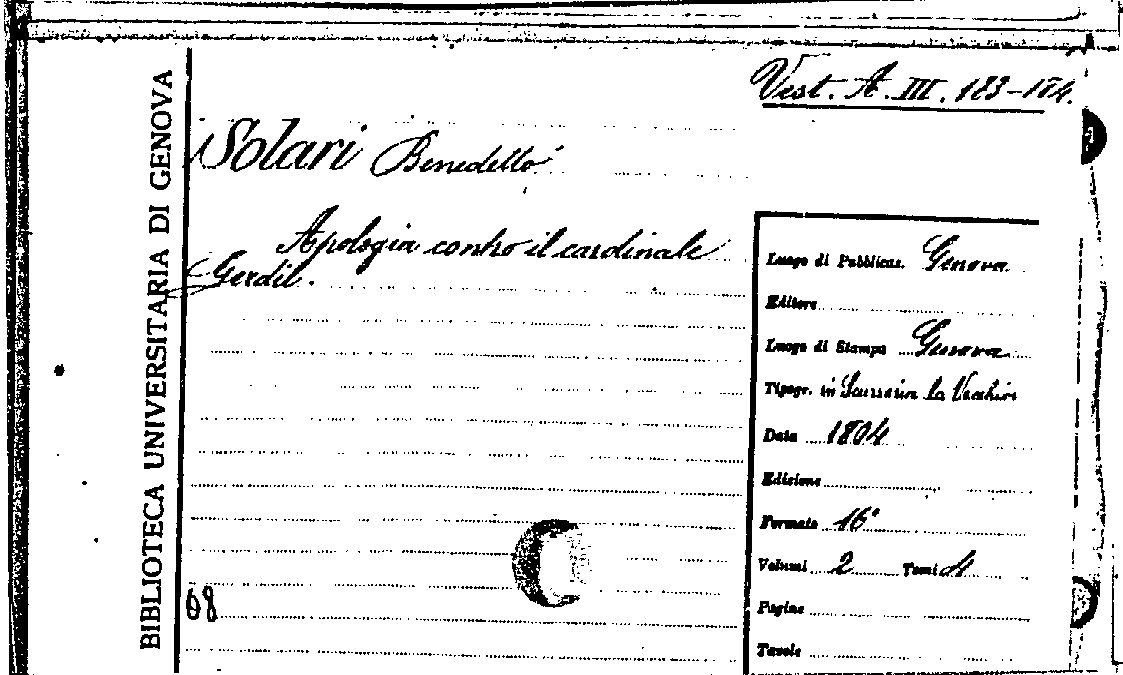 BIBLIOTECA UNIVERSITARIA DI GENOVA
Vest. A. III. 183-184.
Solari Benedetto
Apologia contro il cardinale
Gerdil.
Luogo di Pubblicaz. Genova
Editore
Luogo di Stampa Genova
Tipogr. in Scurreria la Vecchia
Data 1804
Edizione
Formato 16°
Volumi 2 Tomi 4
Pagine
Tavole
68